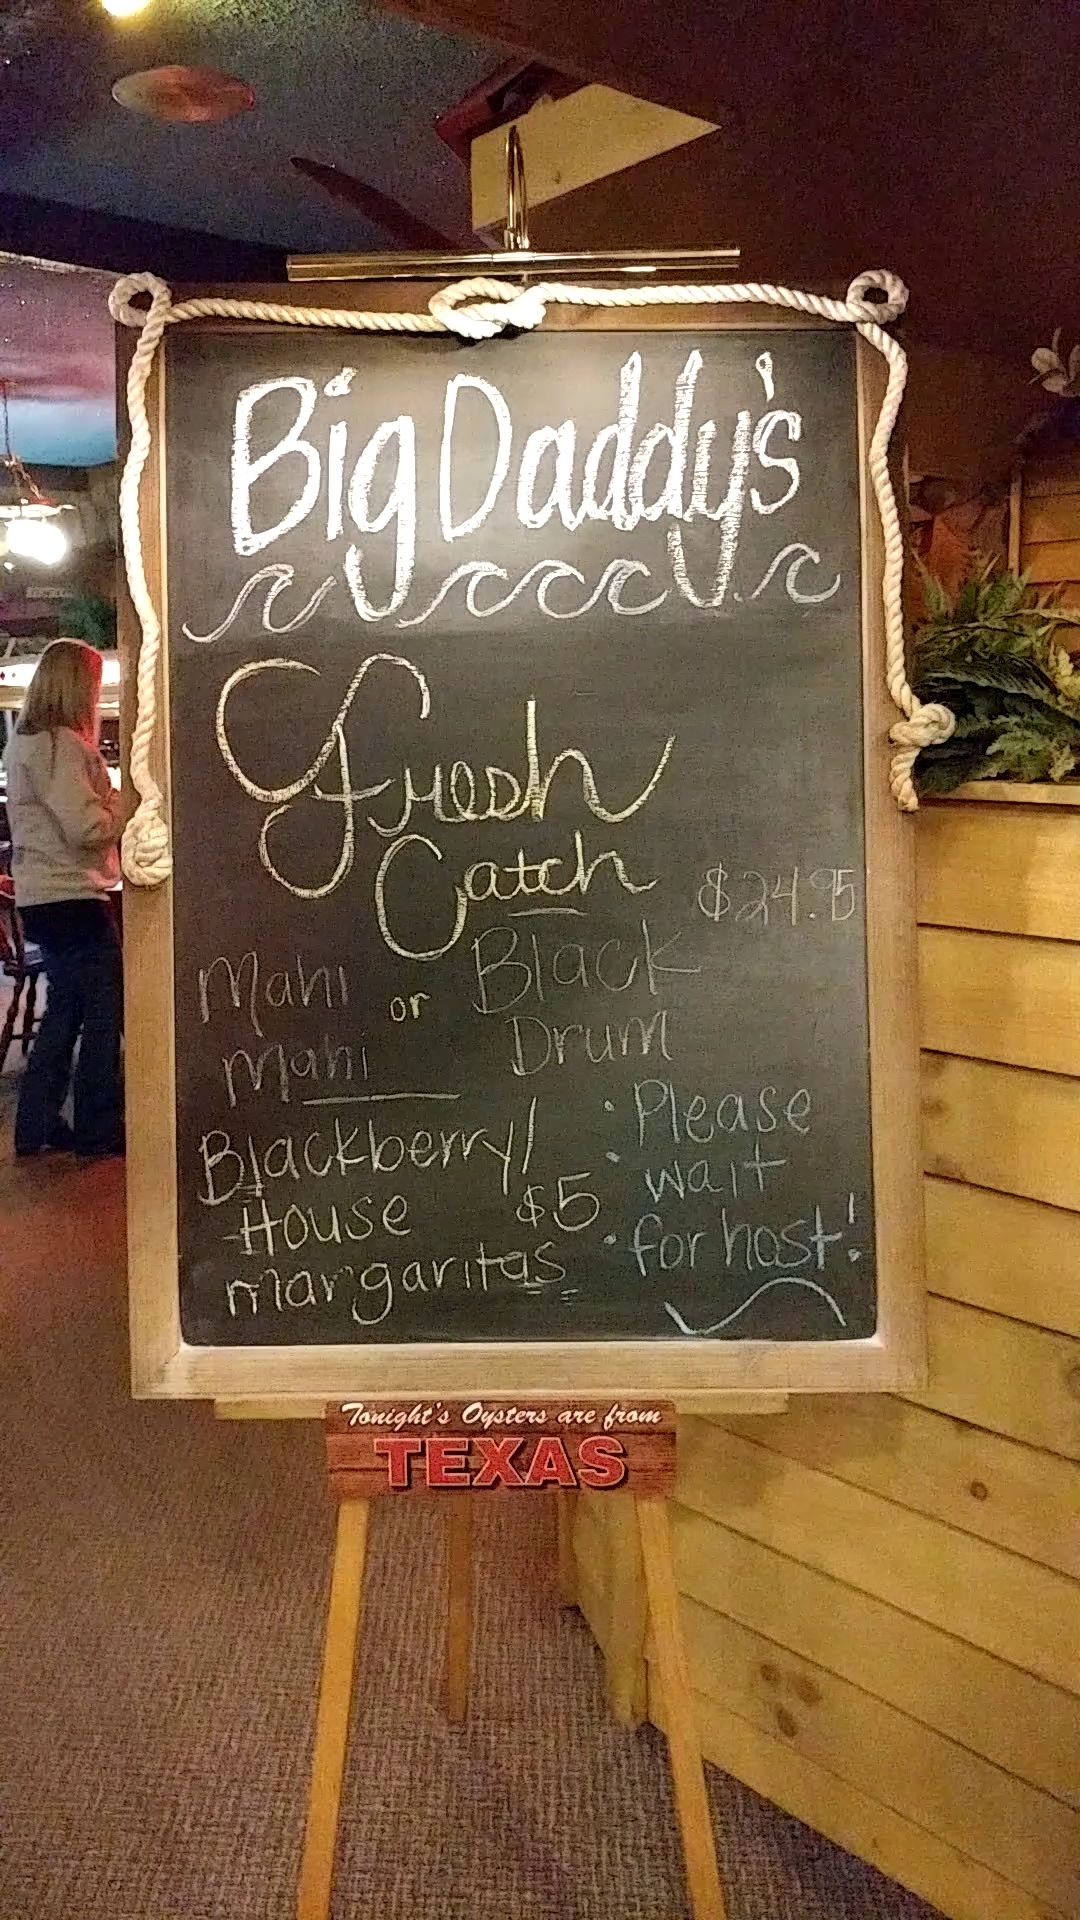 Big Daddy's
Fresh
Catch
$24.95
Mahi or Black
Mahi Drum
Blackberry/
House $5
margaritas
• Please
• wait
• for host!
Tonight's Oysters are from
TEXAS